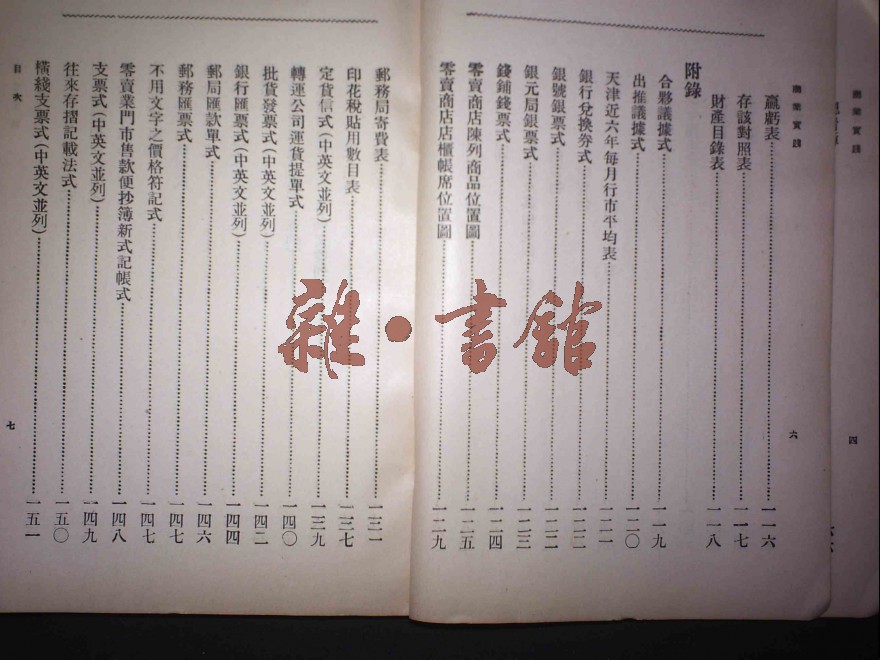 商業實踐
四
商業實踐
六
贏虧表 一一六
存該對照表 一一七
財產目錄表 一一八
附錄
合夥議據式 一一九
出推議據式 一二〇
天津近六年每月行市平均表 一二一
銀行兌換券式 一二二
銀號銀票式 一二二
銀元局銀票式 一二三
錢鋪錢票式 一二四
零賣商店陳列商品位置圖 一二五
零賣商店店櫃帳席位置圖 一二九
郵務局寄費表 一三一
印花稅貼用數目表 一三七
定貨信式(中英文並列) 一三九
轉運公司運貨提單式 一四〇
批貨發票式(中英文並列) 一四二
銀行匯票式(中英文並列) 一四四
郵局匯款單式 一四六
郵務匯票式 一四七
不用文字之價格符記式 一四七
零賣業門市售款便抄簿新式記帳式 一四八
支票式(中英文並列) 一四九
往來存摺記載法式 一五〇
橫綫支票式(中英文並列) 一五一
目次
七
雜·書館